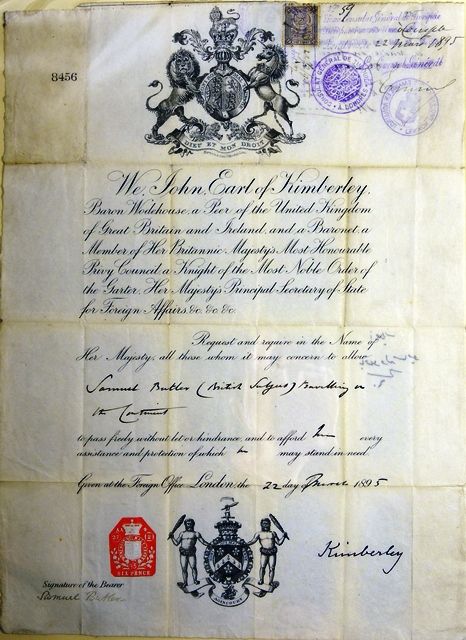 59
22 Mars 1895
CONSULAT GÉNÉRAL DE TURQUIE
A LONDRES
8456
DIEU ET MON DROIT
We, John, Earl of Kimberley,
Baron Wodehouse, a Peer of the United Kingdom
of Great Britain and Ireland, and a Baronet, a
Member of Her Britannic Majesty's Most Honourable
Privy Council, a Knight of the Most Noble Order of
the Garter, Her Majesty's Principal Secretary of State
for Foreign Affairs, &c. &c. &c.
Request and require in the Name of
Her Majesty, all those whom it may concern to allow
Samuel Butler (British Subject) travelling on
the Continent
to pass freely without let or hindrance, and to afford him every
assistance and protection of which he may stand in need.
Given at the Foreign Office, London, the 22 day of March 1895
SIX PENCE
Kimberley
AGINCOURT
Signature of the Bearer
Samuel Butler